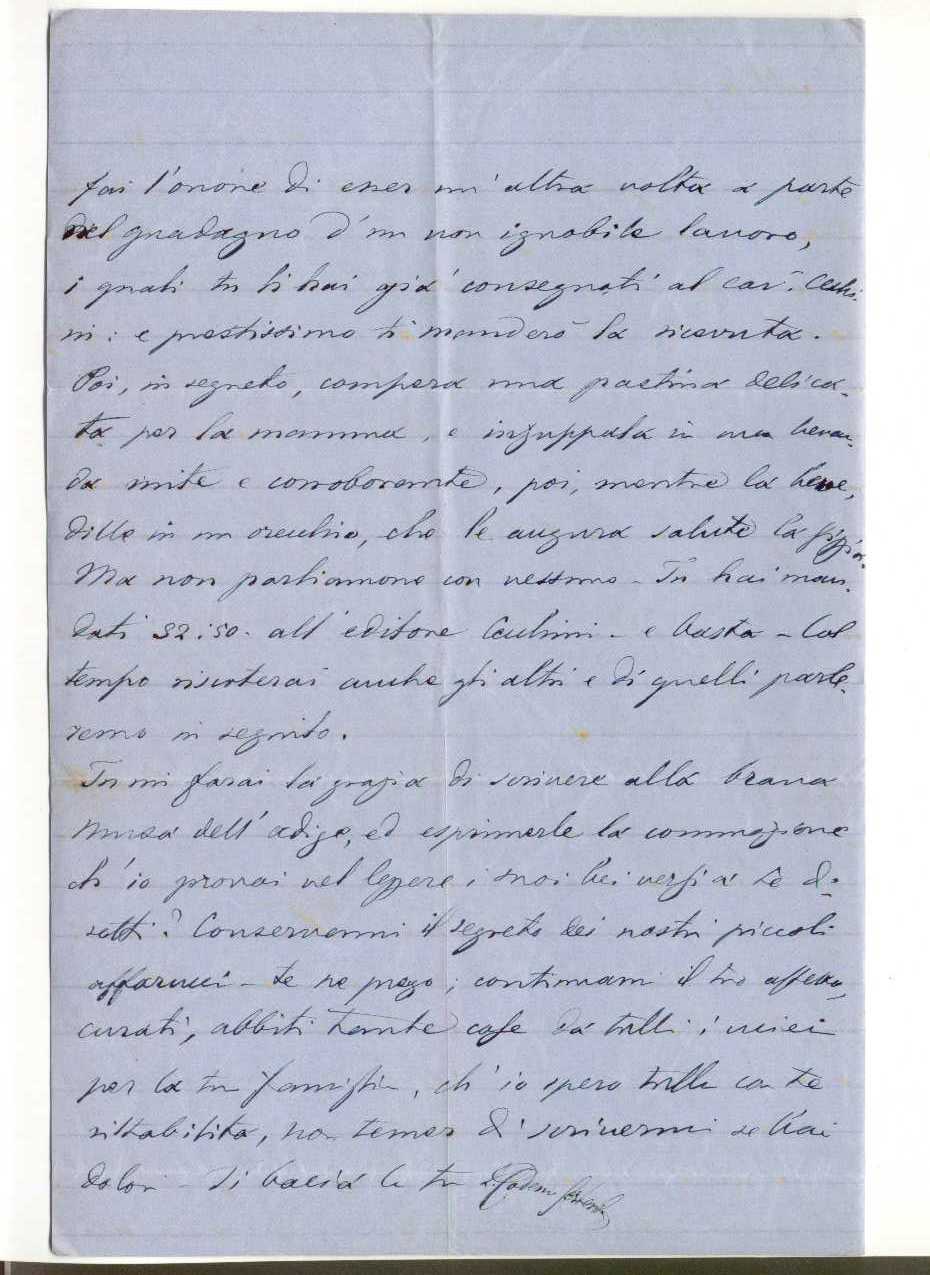 fai l'onore di esser un' altra volta a parte
del guadagno d'un non ignobile lavoro,
i quali tu li hai già consegnati al car. Cecchi-
ni: e prestissimo ti manderò la ricevuta.
Poi, in segreto, compera una pastina delica-
ta per la mamma, e inzuppala in una bevan-
da mite e corroborante, poi, mentre la beve,
dille in un orecchio, che le augura salute la
Ma non parliamone con nessuno - Tu hai man-
dati 32:50. all' editore Cecchini - e basta - Col
tempo riscoterai anche gli altri e di quelli parle-
remo in seguito.
Tu mi farai la grazia di scrivere alla brava
Musa dell' adige, ed esprimerle la commozione
ch' io provai nel leggere i suoi bei versi a te di-
retti? Conservami il segreto dei nostri piccoli
affarucci - te ne prego; continuami il tuo affetto,
curati, abbiti tante cose da tutti i miei
per la tua famiglia, ch' io spero tutta con te
ristabilita, non temer di scrivermi se hai
dolori - Ti bacia la tua